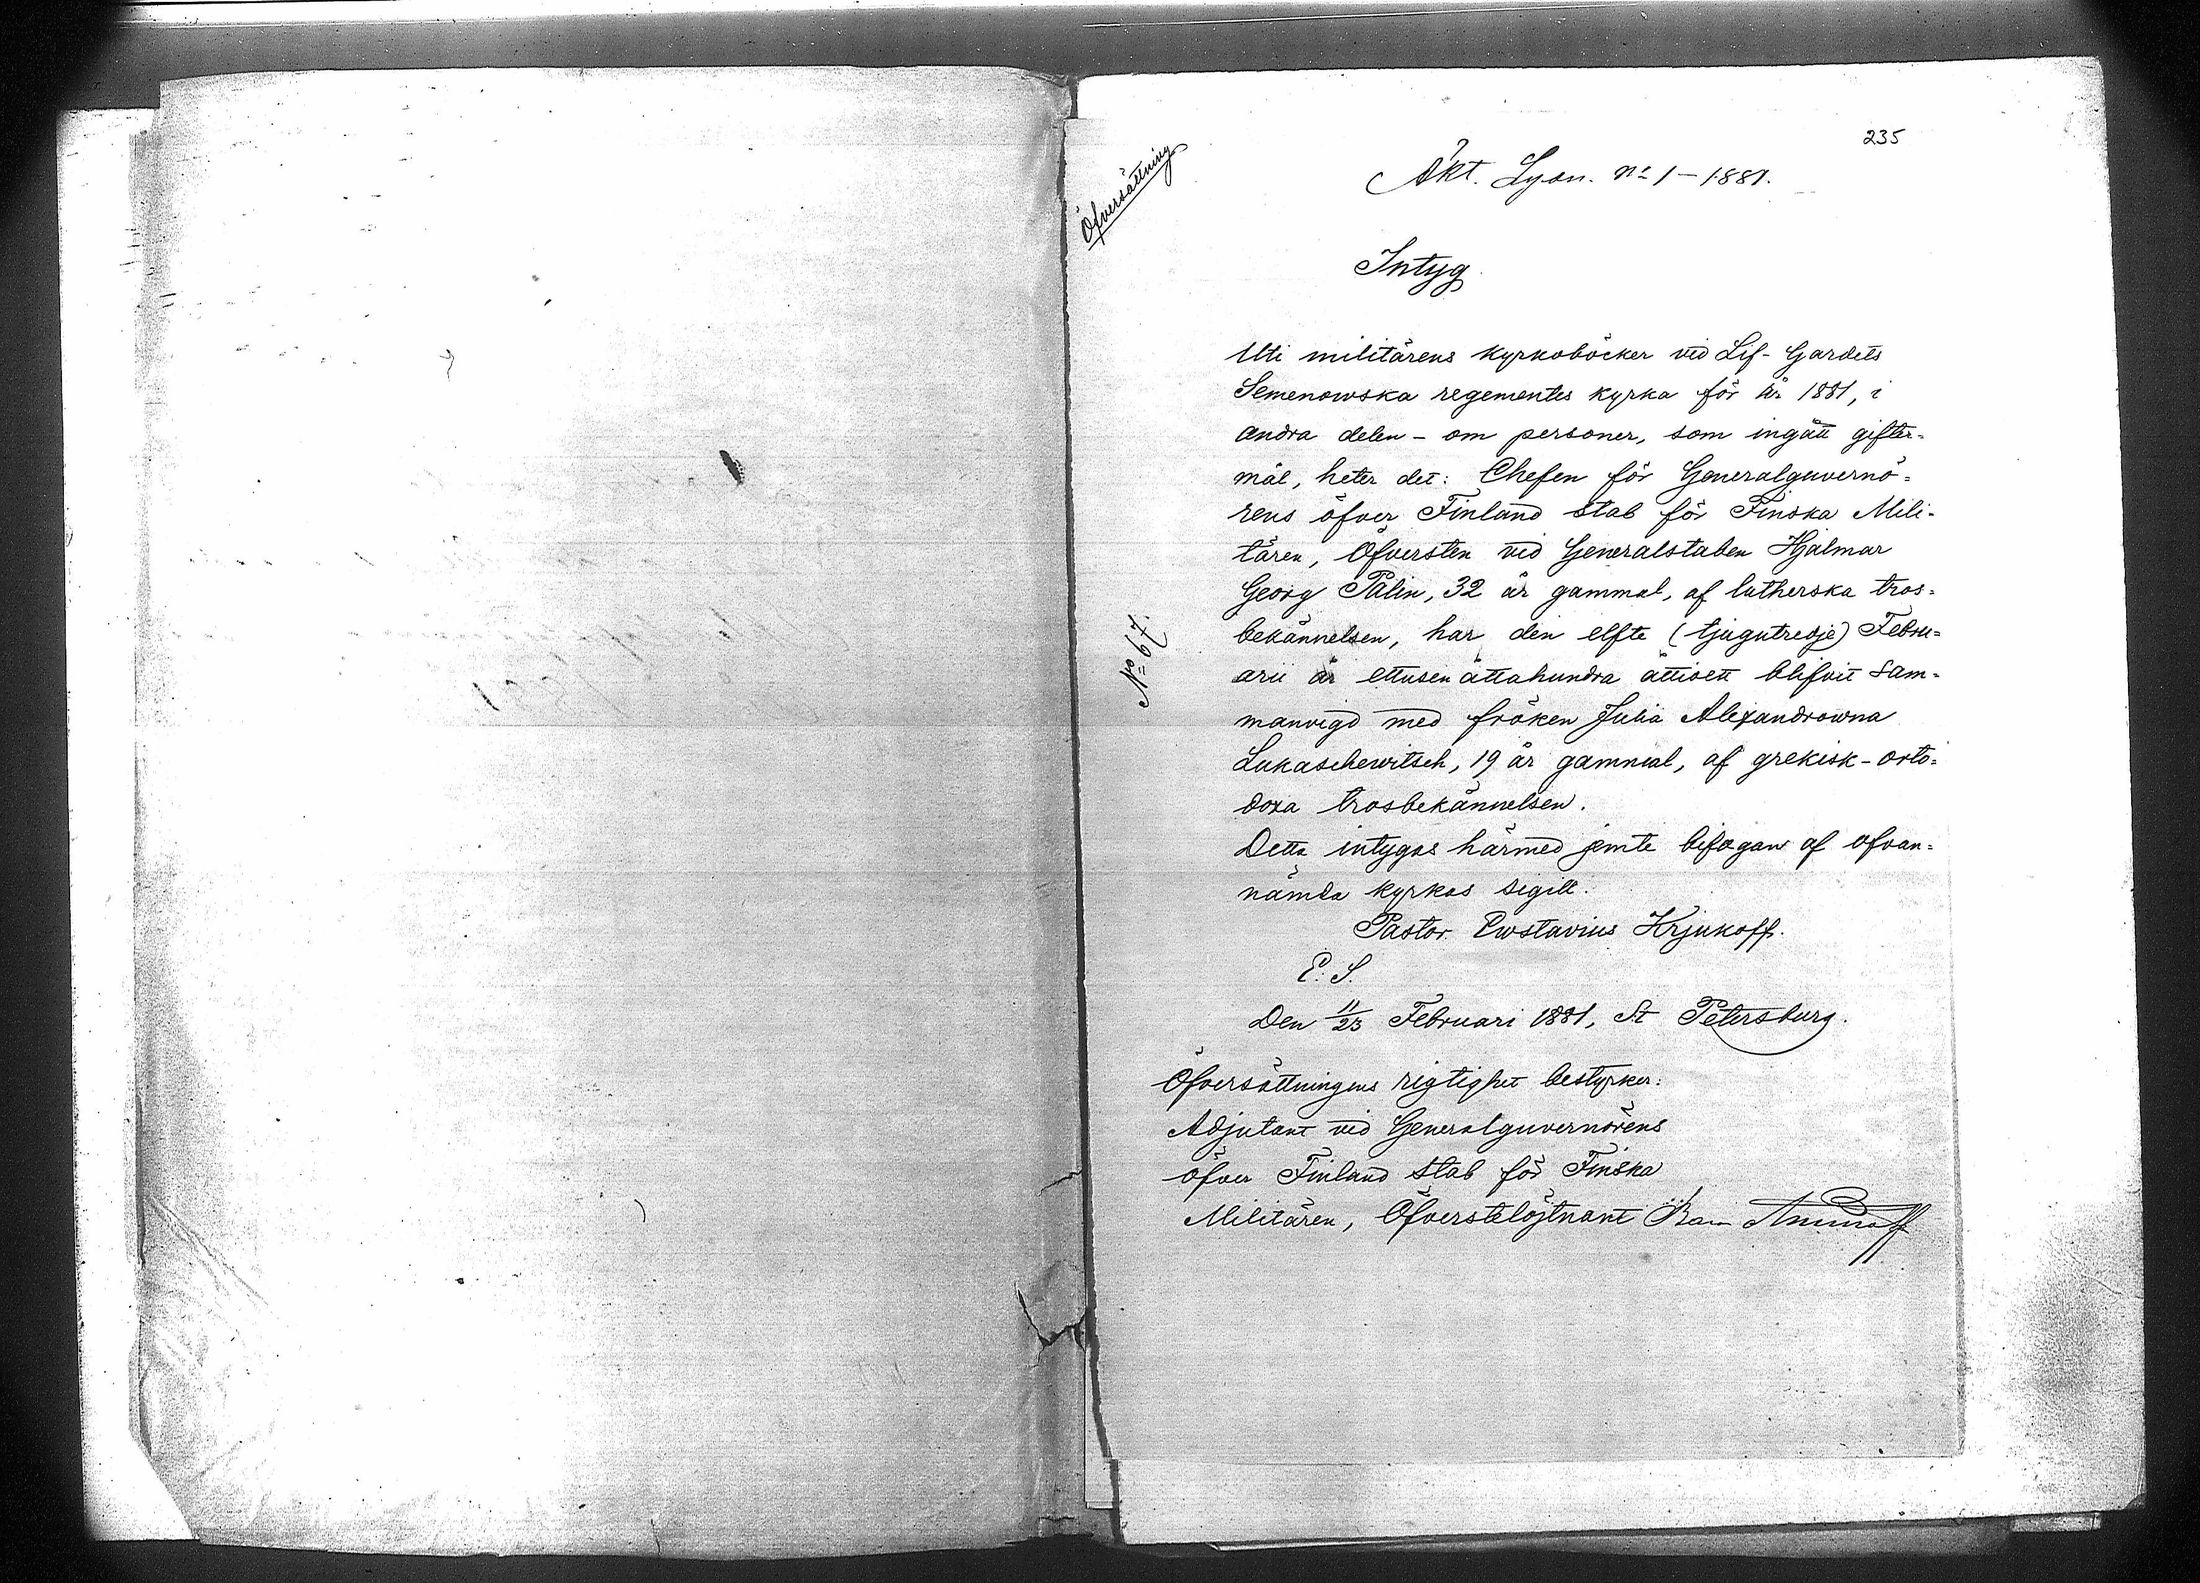 235
Öfversättning
Äkt. Lysn. No 1 – 1881.
Intyg
Uti militärens kyrkoböcker vid Lif-Gardets
Semenowska regementes kyrka för år 1881, i
andra delen – om personer, som ingått gifter-
mål, heter det: Chefen för Generalguvernö-
rens öfver Finland stab för Finska Mili-
tären, Öfversten vid Generalstaben Hjalmar
Georg Palin, 32 år gammal, af lutherska tros-
bekännelsen, har den elfte (tjugutredje) Febru-
No 67.
arii år ettusen åttahundra åttioett blifvit sam-
manvigd med fröken Julia Alexandrowna
Lukaschewitsch, 19 år gammal, af grekisk-orto-
doxa trosbekännelsen.
Detta intygas härmed jemte bifogan af ofvan-
nämda kyrkas sigill.
Pastor Ewstavius Krjukoff.
E. S.
Den 11/23 Februari 1881, St Petersburg.
Öfversättningens rigtighet bestyrker:
Adjutant vid Generalguvernörens
öfver Finland stab för Finska
Militären, Öfverstelöjtnant